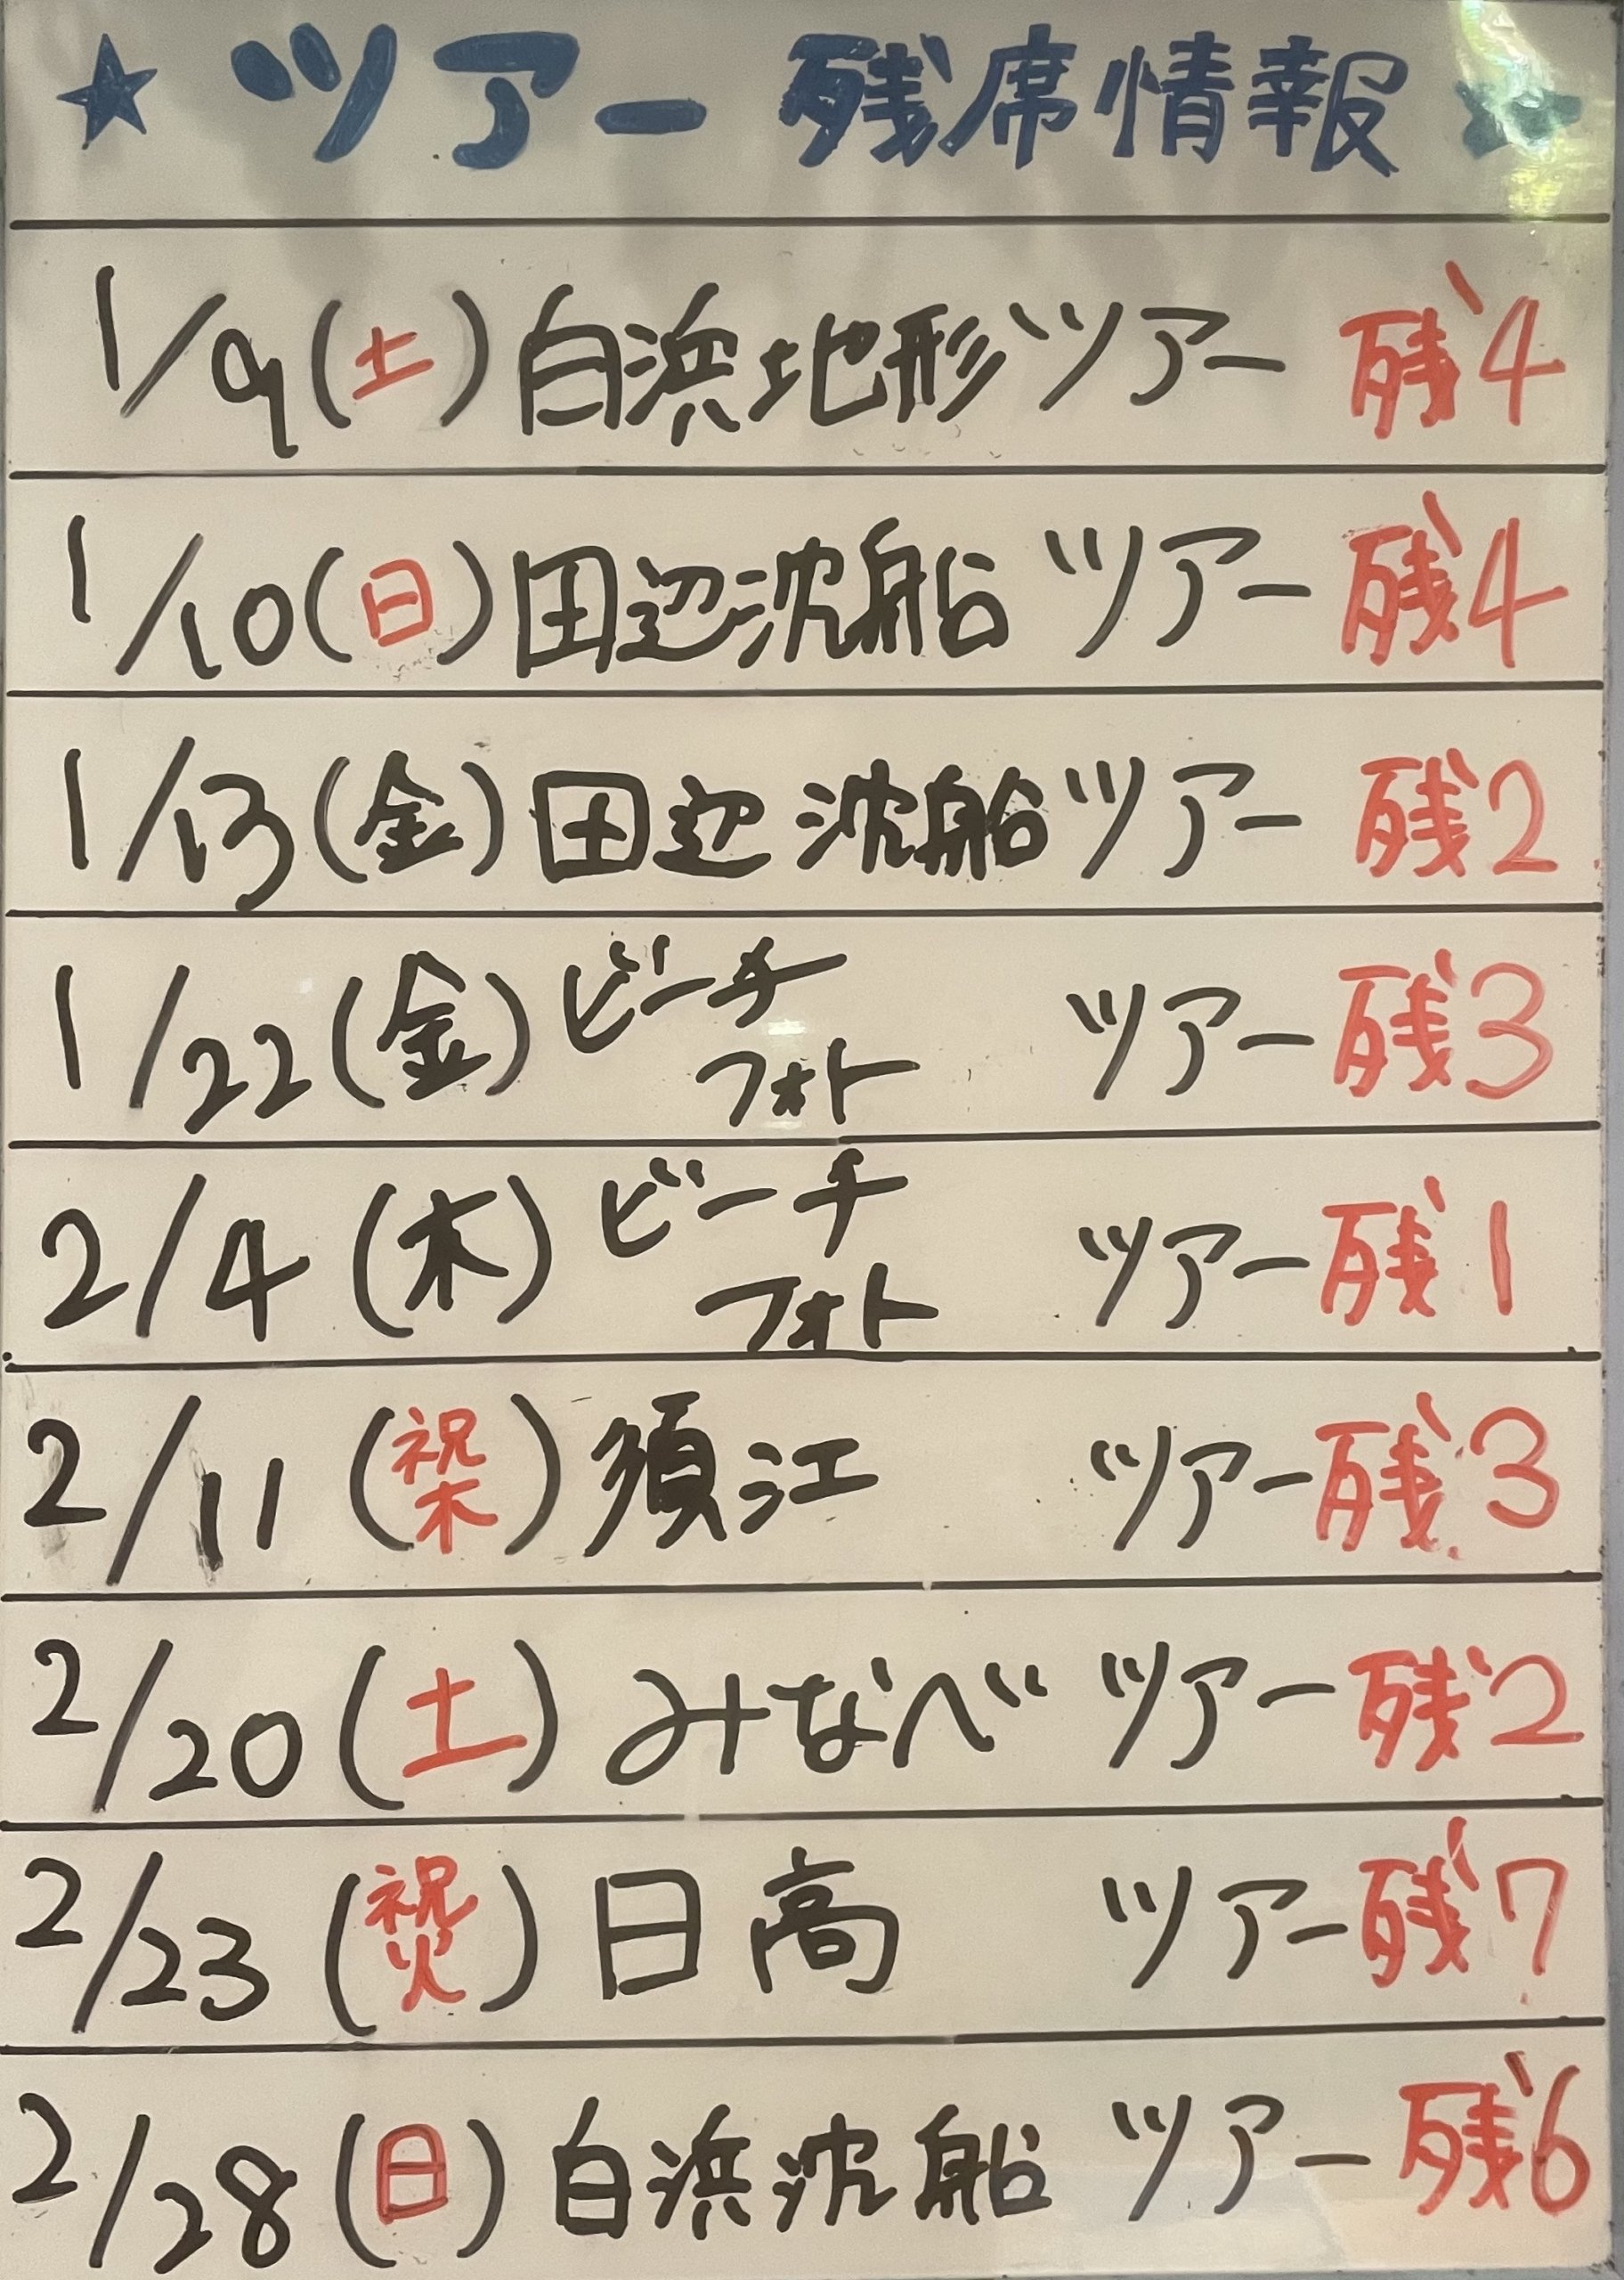 ★ツアー 残席情報★
1/9(土)白浜地形ツアー 残4
1/10(日)田辺沈船ツアー 残4
1/13(金)田辺沈船ツアー 残2
1/22(金)ビーチフォト ツアー残3
2/4(木)ビーチフォト ツアー残1
2/11(祝木)須江 ツアー残3
2/20(土)みなべ ツアー残2
2/23(祝火)日高 ツアー残7
2/28(日)白浜沈船 ツアー残6